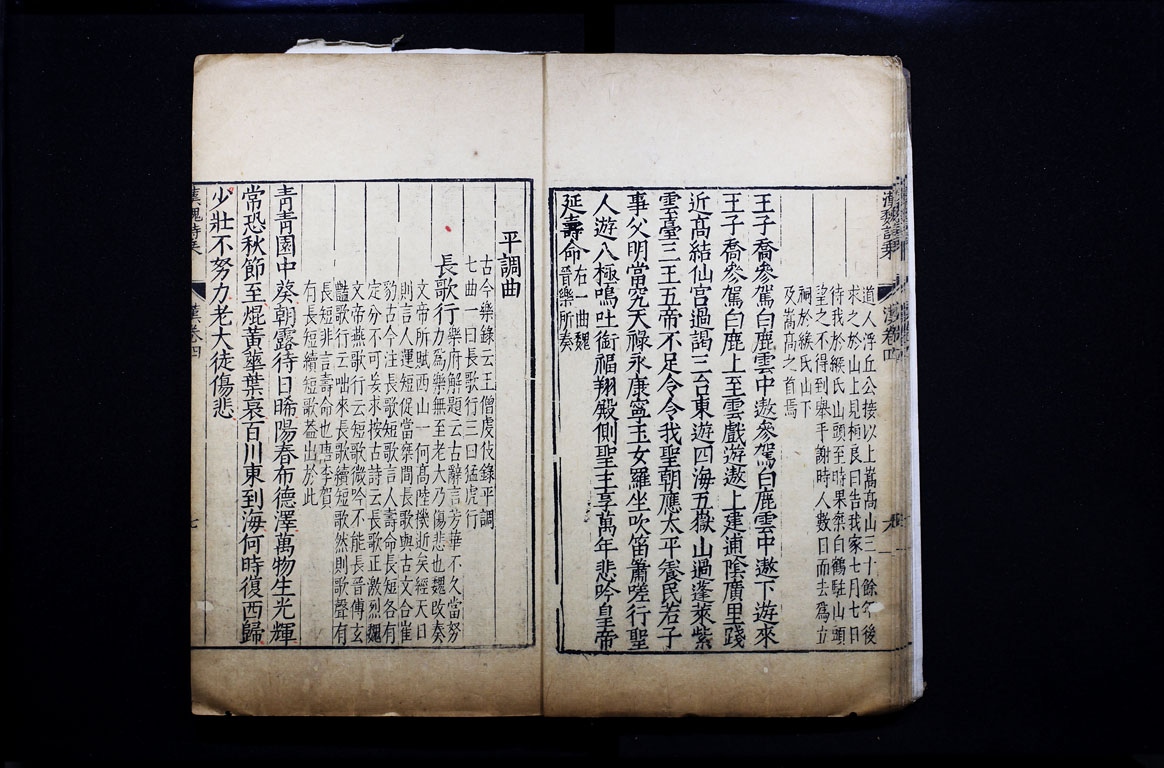 漢魏詩乘
漢卷四
六
道人浮丘公接以上嵩高山三十餘年後
求之於山上見柏良曰告我家七月七日
待我於緱氏山頭至時果乘白鶴駐山頭
望之不得到舉手謝時人數日而去爲立
祠於緱氏山下
及嵩高之首焉
王子喬參駕白鹿雲中遨參駕白鹿雲中遨下遊來
王子喬參駕白鹿上至雲戲遊遨上建逋陰廣里踐
近高結仙宫過謁三台東遊四海五嶽山過蓬萊紫
雲臺三王五帝不足令令我聖朝應太平養民若子
事父明當究天祿永康寧玉女羅坐吹笛簫嗟行聖
人遊八極鳴吐銜福翔殿側聖主享萬年悲吟皇帝
延壽命右一曲魏
晉樂所奏
平調曲
古今樂錄云王僧虔伎錄平調
七曲一曰長歌行三曰猛虎行
長歌行樂府解題云古辭言芳華不久當努
力爲樂無至老大乃傷悲也魏改奏
文帝所賦西山一何高陸機逝矣經天日
則言人運短促當乘間長歌與古文合崔
豹古今注長歌短歌言人壽命長短各有
定分不可妄求按古詩云長歌正激烈魏
文帝燕歌行云短歌微吟不能長晉傅玄
豔歌行云咄來長歌續短歌然則歌聲有
長短非言壽命也唐李賀
有長短續短歌葢出於此
青青園中葵朝露待日晞陽春布德澤萬物生光輝
常恐秋節至焜黃蘤葉衰百川東到海何時復西歸
少壯不努力老大徒傷悲
漢魏詩乘
漢卷四
七